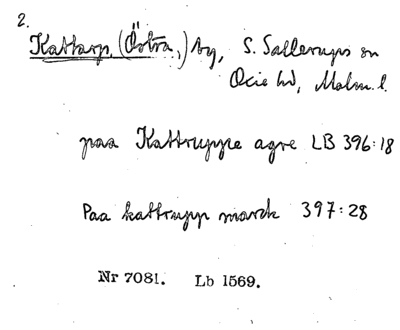 2.
Kattarp, (Östra,) by, S. Sallerups sn
Oxie hd, Malm. l.
paa Kattruppe agre LB 396:18
Paa kattrupp marck 397:28
Nr 7081. Lb 1569.